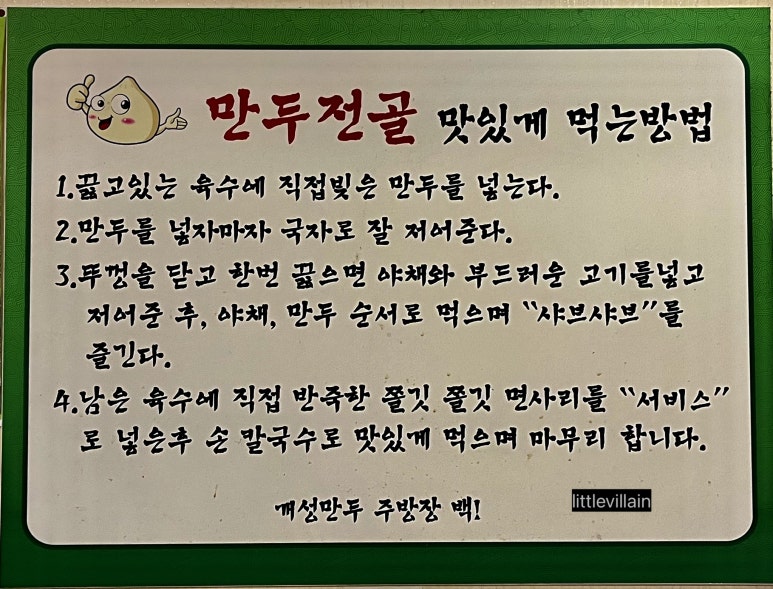 만두전골 맛있게 먹는방법
1.끓고있는 육수에 직접빚은 만두를 넣는다.
2.만두를 넣자마자 국자로 잘 저어준다.
3.뚜껑을 닫고 한번 끓으면 야채와 부드러운 고기를넣고
저어준 후, 야채, 만두 순서로 먹으며 "샤브샤브"를
즐긴다.
4.남은 육수에 직접 반죽한 쫄깃 쫄깃 면사리를 "서비스"
로 넣은후 손 칼국수로 맛있게 먹으며 마무리 합니다.
개성만두 주방장 백!
littlevillain